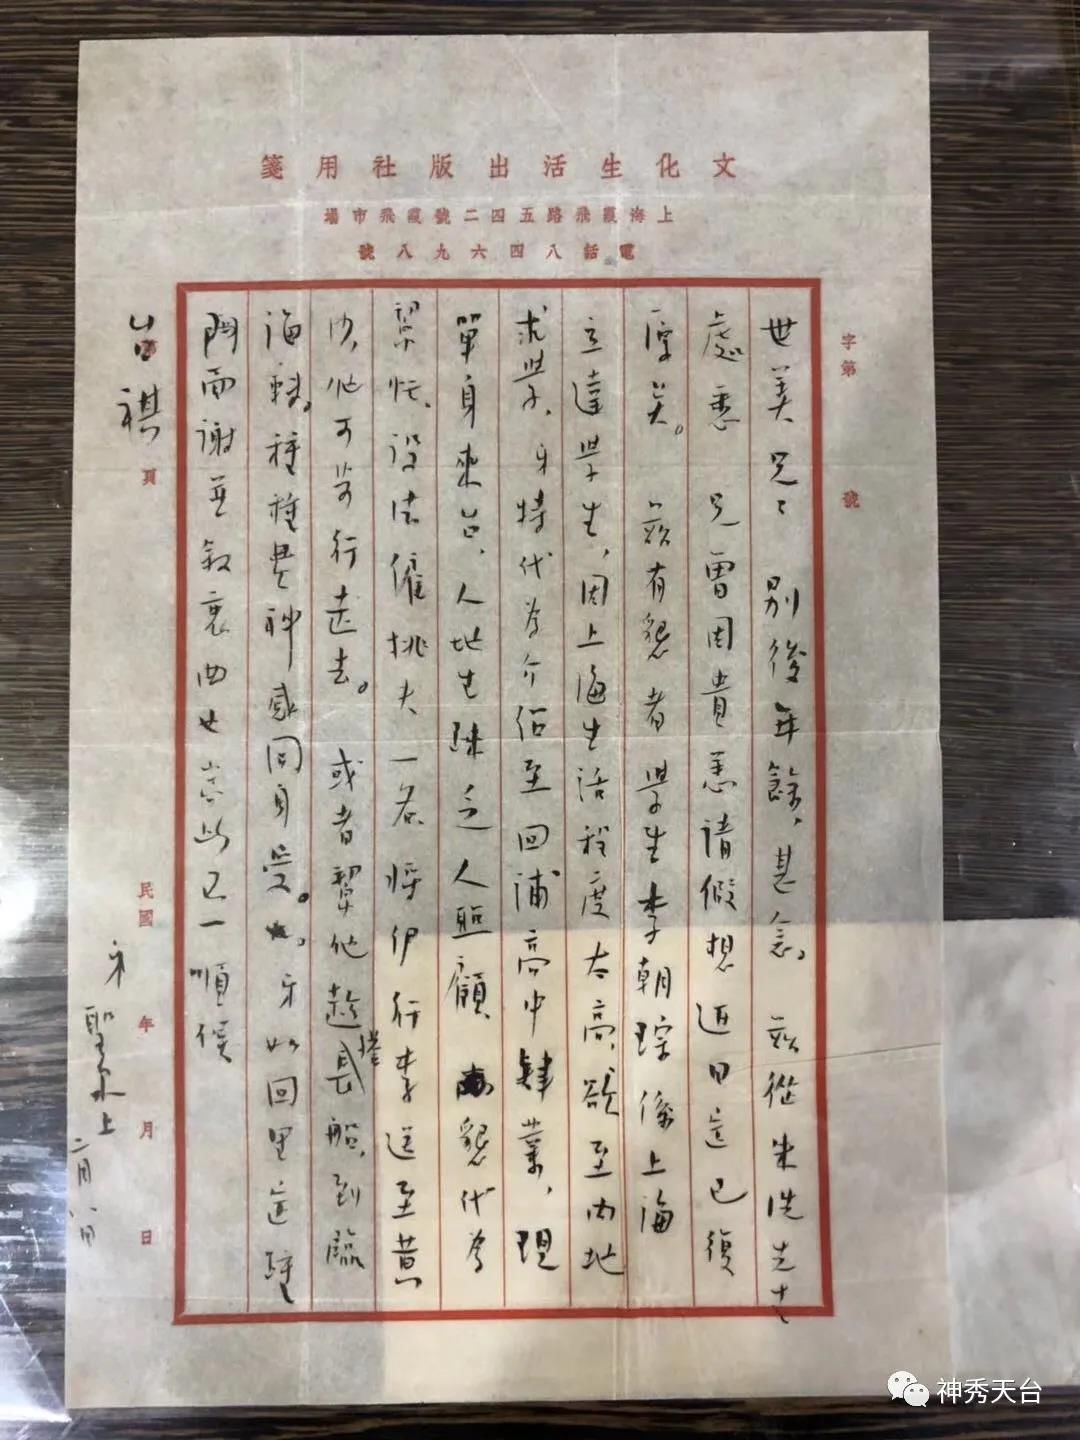 文化生活出版社用箋
上海霞飛路五四二號霞飛市場
電話八四六九八號
字第 號
世美兄：別後年餘，甚念。茲從朱洗先生
處悉 兄曾因貴恙請假想近日定已復
原矣。 茲有懇者學生李朝琮係上海
立達學生，因上海生活程度太高，欲至內地
求學，弟特代為介紹至回浦高中肄業，現
單身來台，人地生疎乏人照顧，懇代為
幫忙、設法僱挑夫一名，將伊行李送至黃
沙，他可步行走去。 或者幫他趁搭長船，到臨
海轉。種種費神感同身受。弟如回里定踵
門面謝並敘衷曲也 此一順候
台祺
頁
弟 聖泉上
二月八日
民國 年 月 日
神秀天台